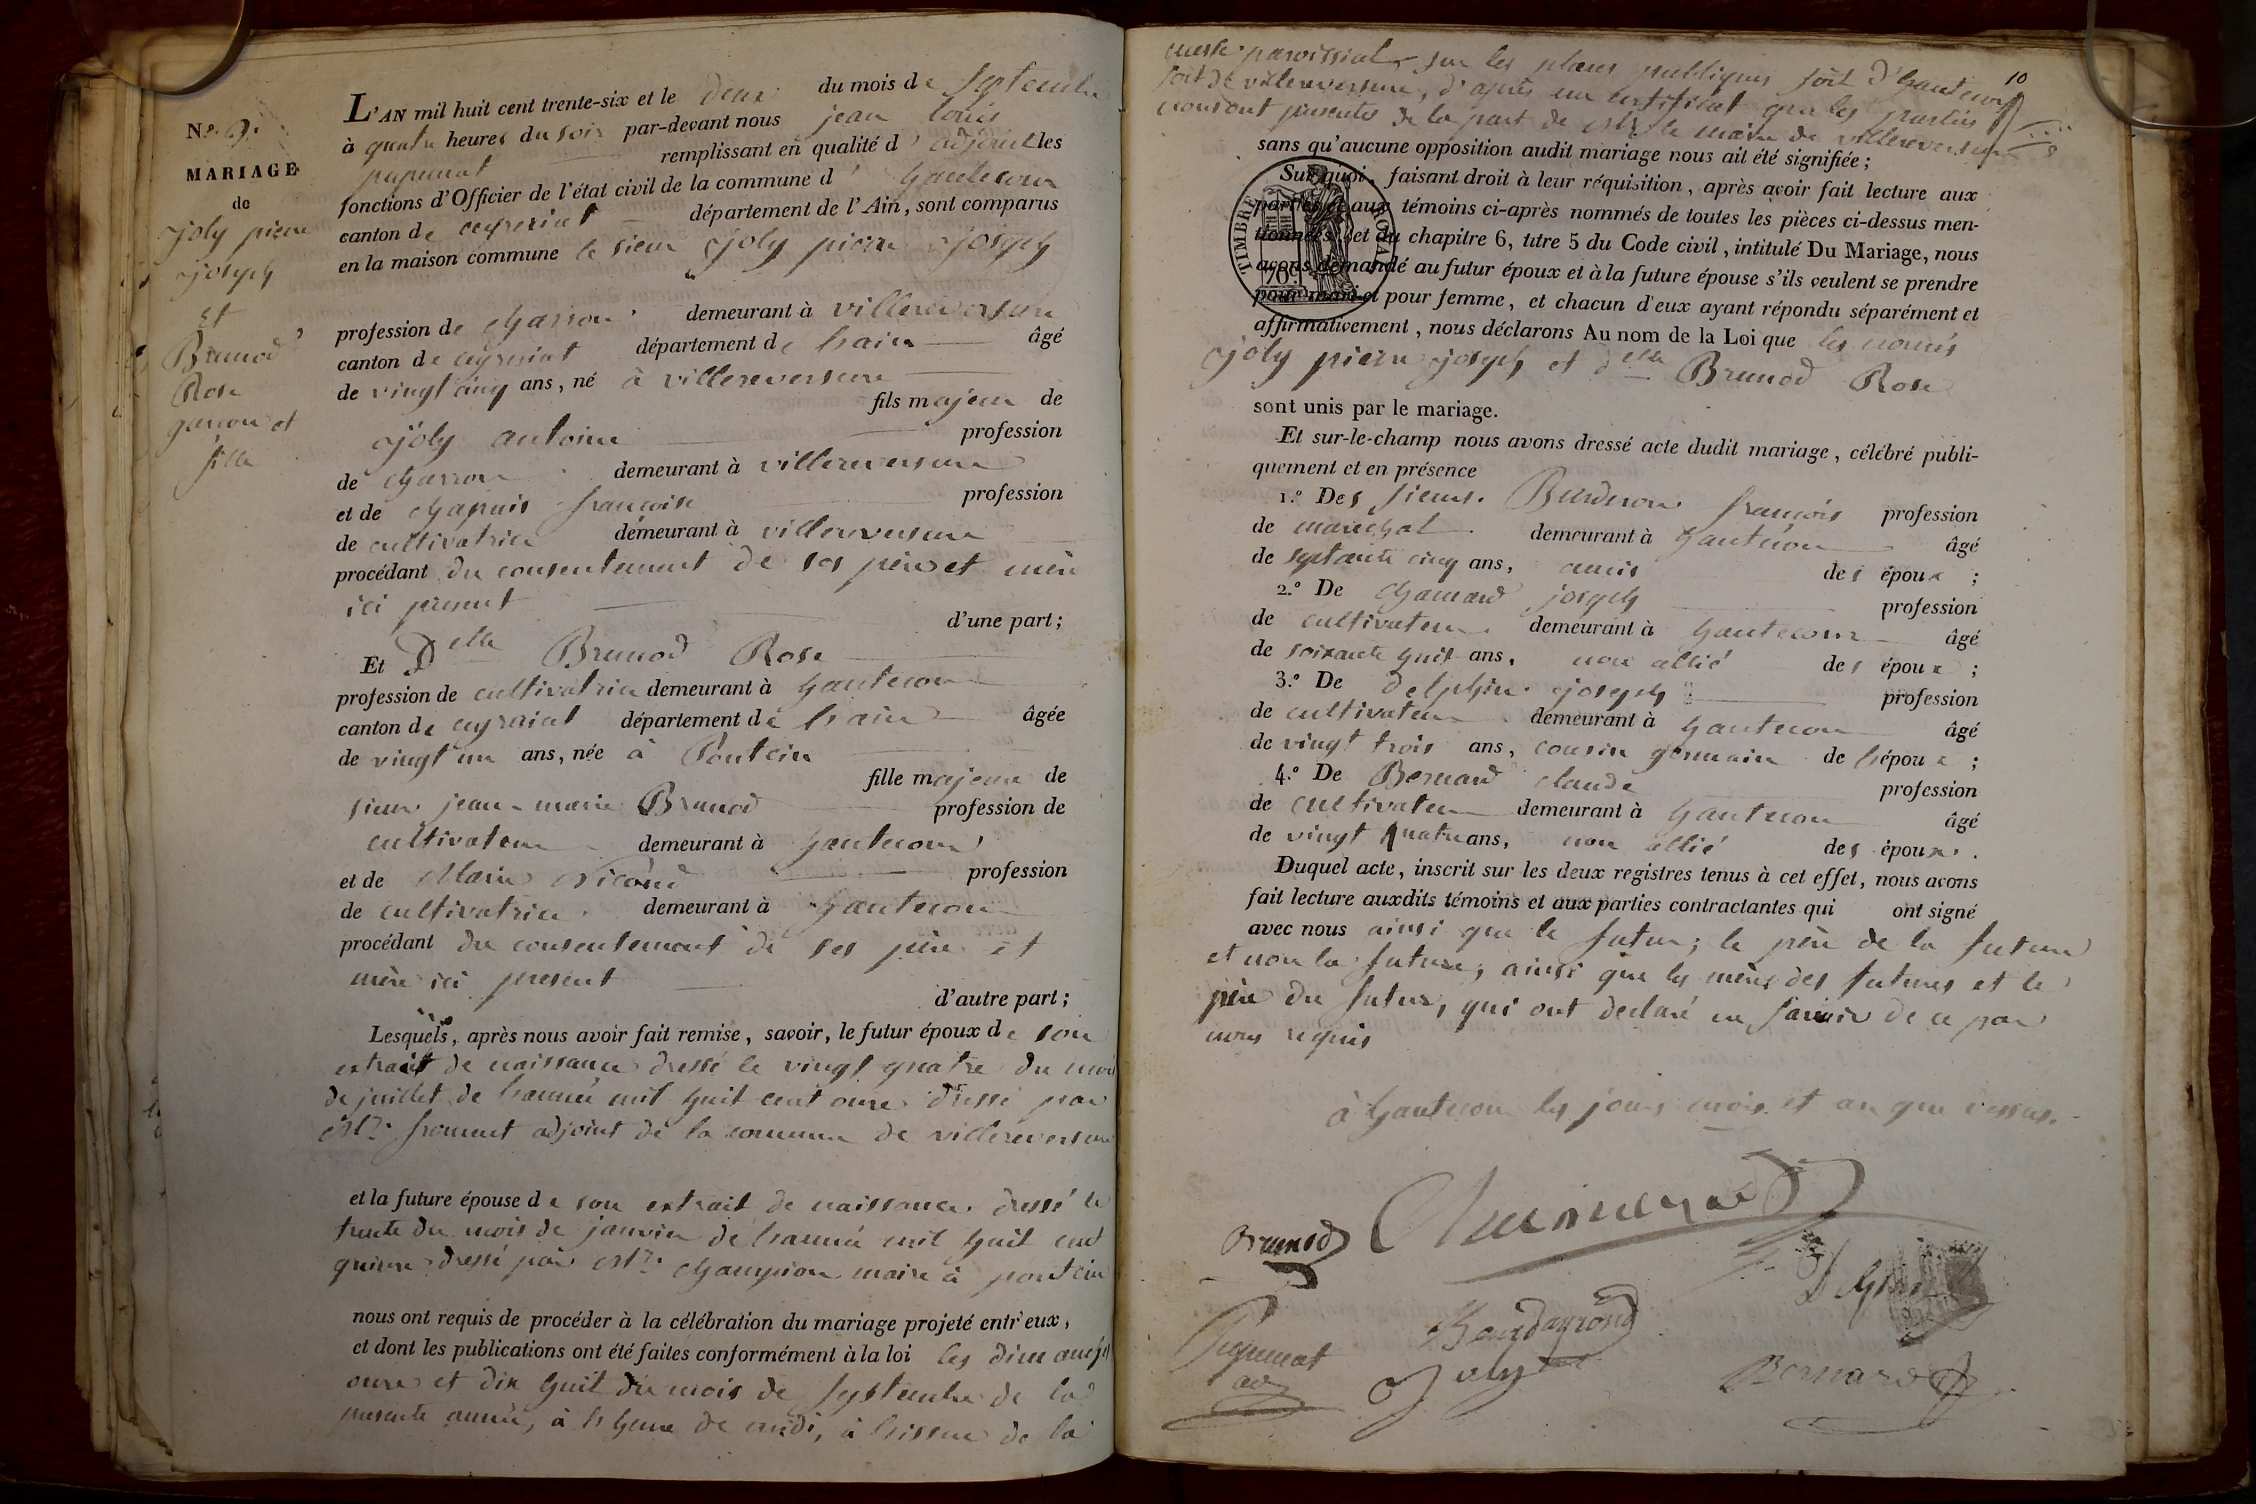 N.º 9.
MARIAGE
de
joly pierre
joseph
Et
Brunod
Rose
garcon et
fille
L'AN mil huit cent trente-six et le deux du mois de septembre
à quatre heures du soir par-devant nous jean louis
remplissant en qualité d'adjoint les
fonctions d'Officier de l'état civil de la commune d'hautecour
canton de ceyzeriat département de l'Ain, sont comparus
en la maison commune le sieur joly pierre joseph
profession de charron demeurant à villereversure
canton de ceyzeriat département de lain âgé
de vingt cinq ans, né à villereversure
fils majeur de
joly antoine profession
de charron demeurant à villereversure
et de chapuis francoise profession
de cultivatrice demeurant à villereversure
procédant du consentement de ses père et mère
ici present d'une part;
Et Delle Brunod Rose
profession de cultivatrice demeurant à hautecour
canton de ceyzeriat département de lain âgée
de vingt un ans, née à Pontcin
fille majeure de
sieur jean marie Brunod profession de
cultivateur demeurant à hautecour
et de Marie profession
de cultivatrice demeurant à hautecour
procédant du consentement de ses père et
mère ici present d'autre part;
Lesquels, après nous avoir fait remise, savoir, le futur époux de son
extrait de naissance dressé le vingt quatre du mois
de juillet de lannée mil huit cent onze dressé par
Mr. froment adjoint de la commune de villereversure
et la future épouse de son extrait de naissance dressé le
trente du mois de janvier de lannée mil huit cent
quinze dressé par Mr. champion maire à pontcin
nous ont requis de procéder à la célébration du mariage projeté entr'eux,
et dont les publications ont été faites conformément à la loi les dimanches
onze et dix huit du mois de septembre de la
presente année, à lheure de midi, à lissue de la
10
messe paroissial, sur les places publiques soit d'hautecour
soit de villereversure, d'après un certificat que les parties
nous ont presentés de la part de Mr le maire de villereversure
sans qu'aucune opposition audit mariage nous ait été signifiée;
Sur quoi, faisant droit à leur réquisition, après avoir fait lecture aux
parties et aux témoins ci-après nommés de toutes les pièces ci-dessus men-
tionnées, et du chapitre 6, titre 5 du Code civil, intitulé Du Mariage, nous
avons demandé au futur époux et à la future épouse s'ils veulent se prendre
pour mari et pour femme, et chacun d'eux ayant répondu séparément et
affirmativement, nous déclarons Au nom de la Loi que les només
joly pierre joseph et delle Brunod Rose
TIMBRE ROYAL
70c
sont unis par le mariage.
Et sur-le-champ nous avons dressé acte dudit mariage, célébré publi-
quement et en présence
1.º Des sieurs françois profession
de marechal demeurant à hautecour âgé
de septante cinq ans, amis des époux;
2.º De joseph profession
de cultivateur demeurant à hautecour âgé
de soixante huit ans, non allié des époux;
3.º De Delphin joseph profession
de cultivateur demeurant à hautecour âgé
de vingt trois ans, cousin germain de lépoux;
4.º De Bernard claude profession
de cultivateur demeurant à hautecour âgé
de vingt quatre ans, non allié des époux.
Duquel acte, inscrit sur les deux registres tenus à cet effet, nous avons
fait lecture auxdits témoins et aux parties contractantes qui ont signé
avec nous ainsi que le futur; le père de la future
et non la future, ainsi que les mères des futures et le
père du futur, qui ont declaré ne savoir de ce par
nous requis
à hautecour les jours mois et an que dessus.
Brunod
Joly
Bernard